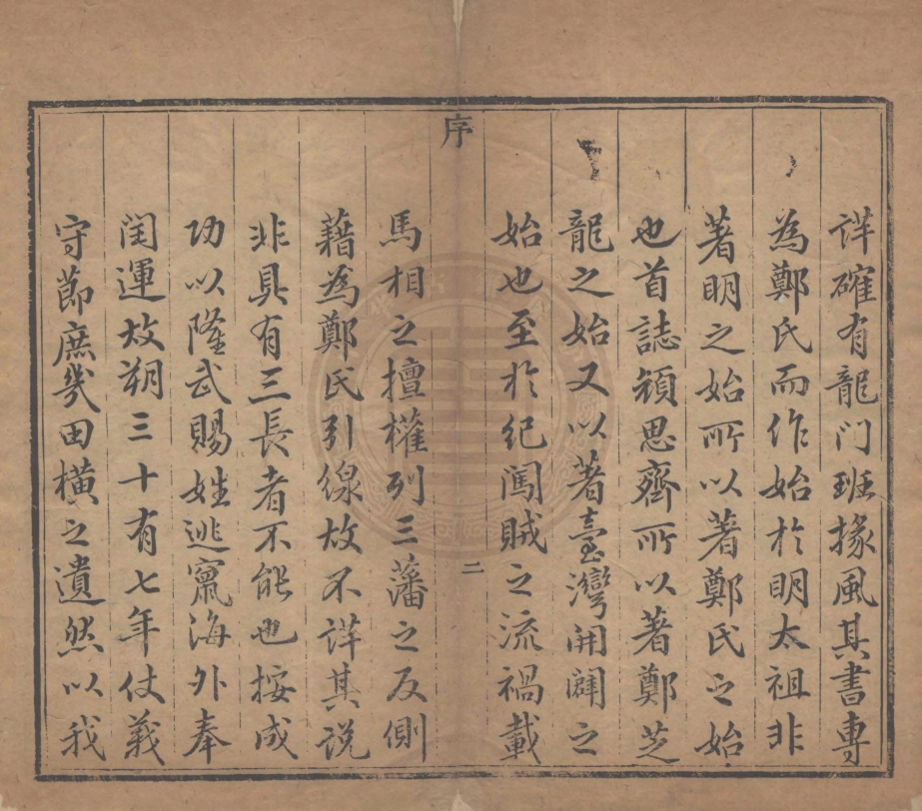 詳確有龍门班掾風其書專
為鄭氏而作始於明太祖非
著明之始所以著鄭氏之始
也首誌顏思齊所以著鄭芝
龍之始又以著臺灣開闢之
始也至於紀闖賊之流禍載
序
二
馬相之擅權列三藩之反側
藉為鄭氏引線故不詳其说
非具有三長者不能也按成
功以隆武賜姓逃竄海外奉
閏運故朔三十有七年仗義
守節庶幾田横之遺然以我